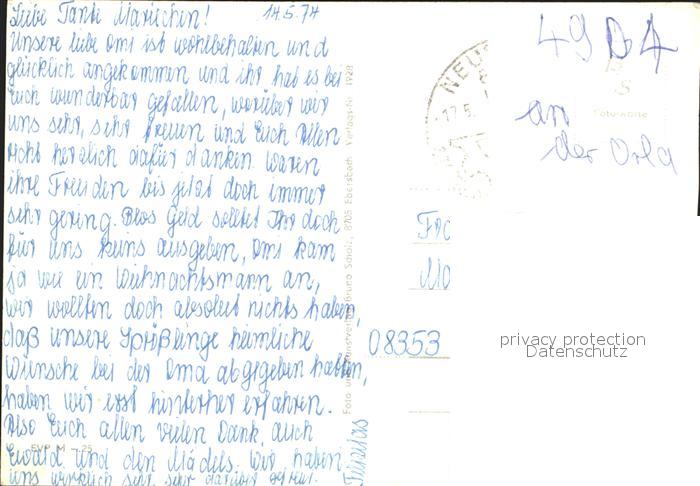 Liebe Tante Mariechen! 14.5.74
Unsere liebe Omi ist wohlbehalten und
glücklich angekommen und ihr hat es bei
Euch wunderbar gefallen, worüber wir
uns sehr, sehr freuen und Euch Allen
recht herzlich dafür danken. Waren
ihre Freuden bis jetzt doch immer
sehr gering. Blos Geld solltet Ihr doch
für uns keins ausgeben, Omi kam
ja wie ein Weihnachtsmann an,
wir wollten doch absolut nichts haben,
daß unsere Spößlinge heimliche
Wünsche bei der Oma abgegeben hatten,
haben wir erst hinterher erfahren.
Also Euch allen vielen Dank, auch
Ewald und den Mädels. Wir haben
uns wirklich sehr, sehr darüber gefreut.
EVP M -,25
Foto und Kunstverlag Bruno Scholz, 8705 Ebersbach Verlags-Nr. 1928
NEUS
17.5.
49 DA
an
der Orla
Foto-Karte
08353
privacy protection
Datenschutz